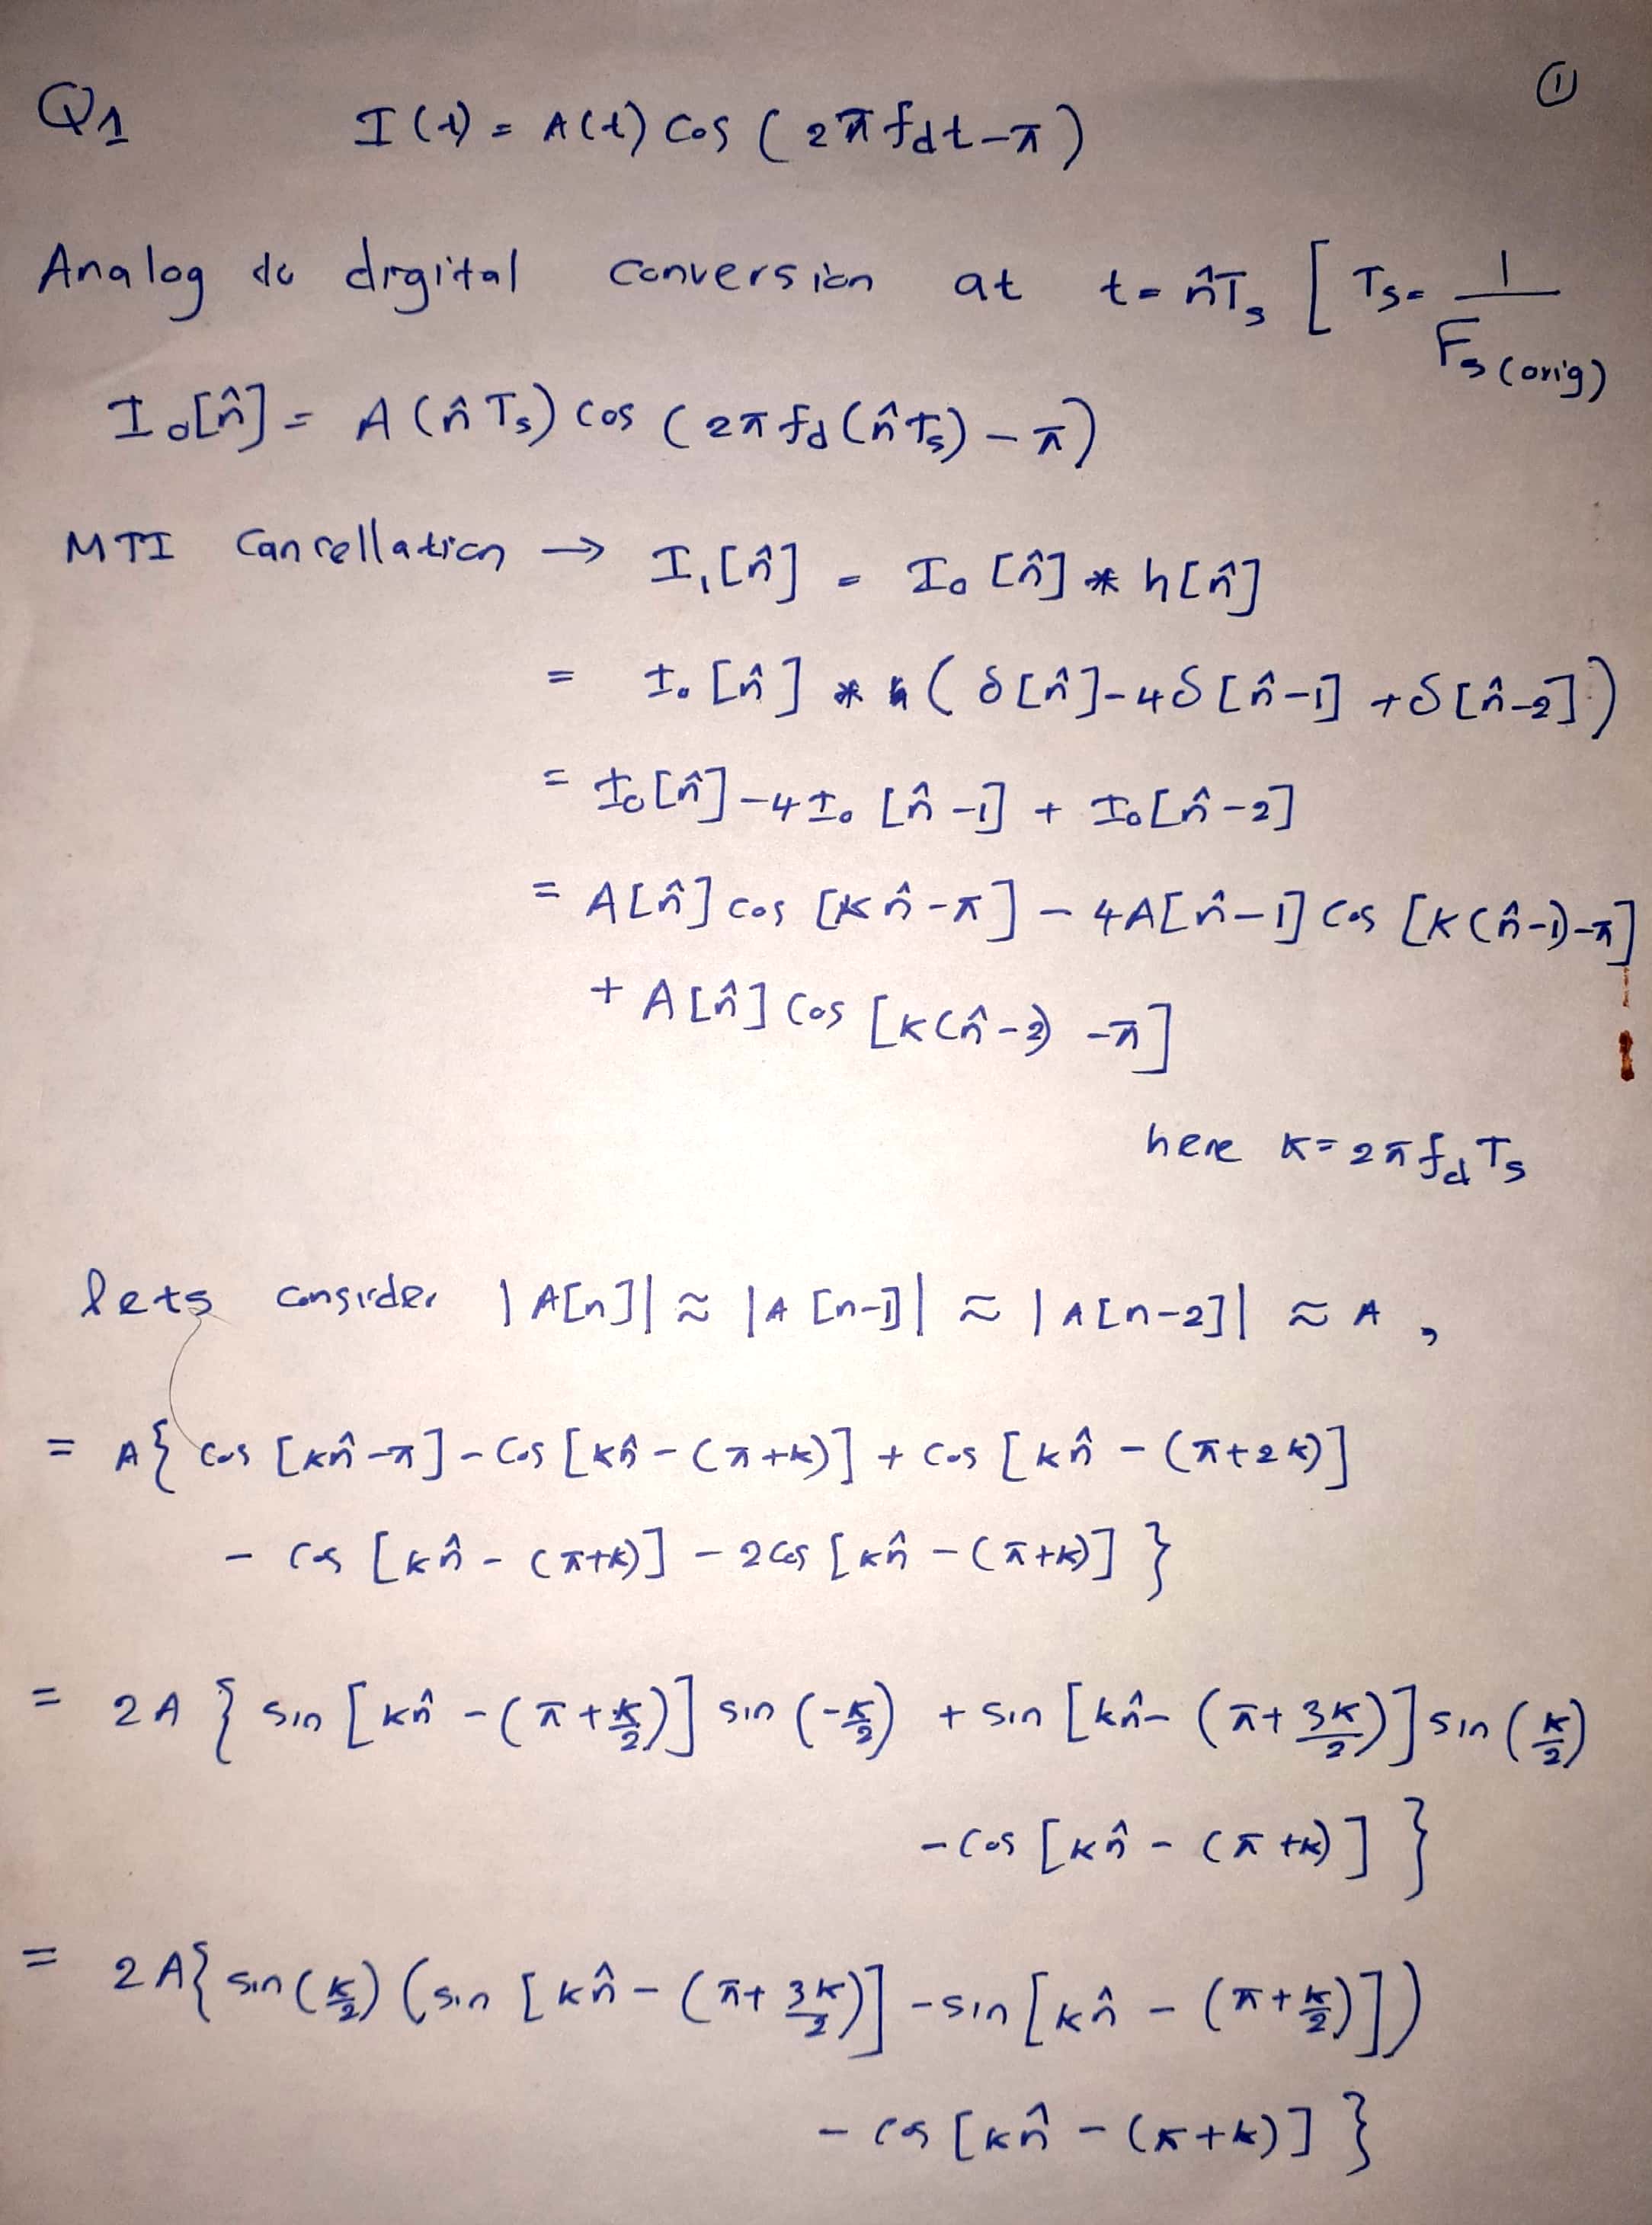 ①
Q1 I(t) = A(t) cos (2π fdt-π)
Analog to drgital conversion at t= n̂Ts [ Ts= 1/Fs(orig)
I₀[n̂] = A(n̂Ts) cos (2π fd(n̂Ts) - π)
MTI Cancellation → I₁[n̂] = I₀[n̂] * h[n̂]
= I₀[n̂] * (δ[n̂]-4δ[n̂-1] +δ[n̂-2])
= I₀[n̂] -4I₀[n̂-1] + I₀[n̂-2]
= A[n̂] cos [Kn̂-π] - 4A[n̂-1] cos [K(n̂-1)-π]
+ A[n̂] cos [K(n̂-2) -π]
here K=2π fd Ts
lets consider |A[n]| ≈ |A[n-1]| ≈ |A[n-2]| ≈ A ,
= A{ cos [kn̂-π] - cos [kn̂-(π+k)] + cos [kn̂ - (π+2k)]
- cos [kn̂ - (π+k)] - 2cos [kn̂ - (π+k)] }
= 2A { sin [kn̂ -(π+k/2)] sin (-k/2) + sin [kn̂- (π+3k/2)] sin (k/2)
- cos [kn̂ - (π+k)] }
= 2A{ sin(k/2) (sin [kn̂ - (π+3k/2)] -sin [kn̂ - (π+k/2)])
- cos [kn̂ - (π+k)] }